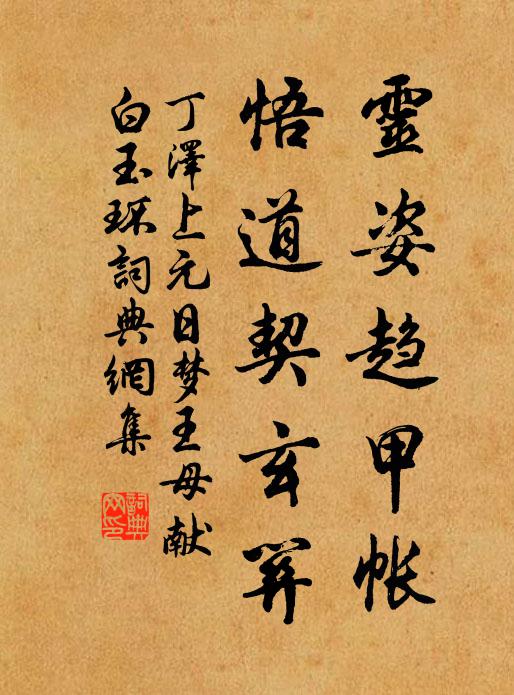 靈姿趋甲帳
悟道契玄關
丁澤上元日梦王母献
白玉环詞典網集
詞典网印